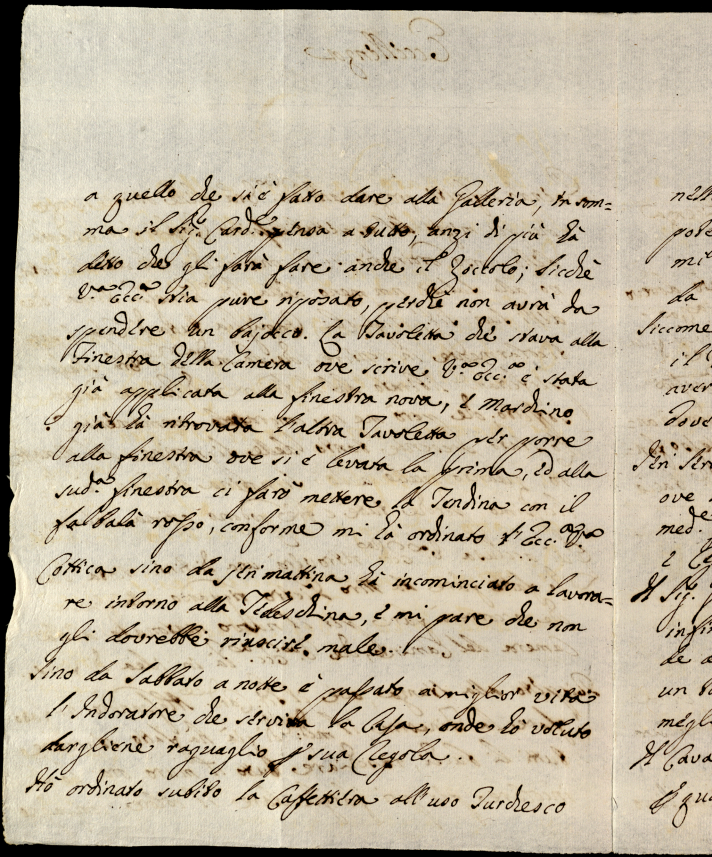 a quello che si è fatto dare alla Galleria, in som=
ma il Sig.r Card.e pensa a tutto; anzi di più hà
detto che gli farà fare anche il Zoccolo; sicchè
V.a Ecc.a stia pure riposato, perchè non avrà da
spendere un bajocco. La Tavoletta che stava alla
Finestra della Camera ove scrive V.a Ecc.a è stata
già applicata alla finestra nova, e Marchino
già hà ritrovata l'altra Tavoletta per porre
alla finestra ove si è levata la prima, ed alla
sud.a finestra ci farò mettere la Tendina con il
falbalà rosso, conforme mi hà ordinato l'Ecc.a V.a
Cottica sino da jeri mattina hà incominciato a lavora=
re intorno alla Tedeschina, e mi pare che non
gli dovrebbe riuscire male.
Sino da Sabbato a notte è passato a miglior vita
l'Indoratore, che serviva la Casa, onde hò voluto
dargliene raguaglio p sua Regola.
Hò ordinato subito la Caffettiera all'uso Turchesco
nell
pote
mi
da
Siccome
il
aver
dove
Jeri ser
ove
med.
e
Il Sig.
infin
de a
un
megl
Il Cava
p qu